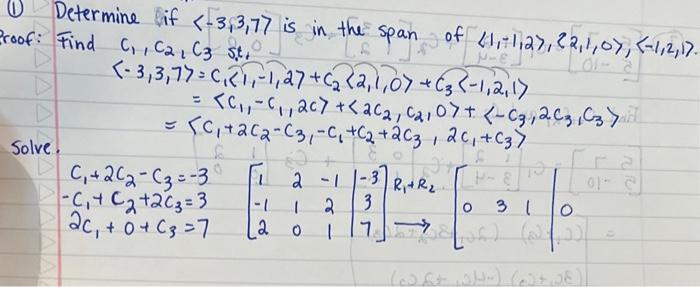 ① Determine if <-3,3,7> is in the span of <1,-1,2>, <2,1,0>, <-1,2,1>.
Proof: Find C₁, C₂, C₃ s.t.
<-3,3,7> = C₁<1,-1,2> + C₂<2,1,0> + C₃<-1,2,1>
= <C₁,-C₁,2C> + <2C₂,C₂,0> + <-C₃,2C₃,C₃>
= <C₁+2C₂-C₃, -C₁+C₂+2C₃, 2C₁+C₃>
Solve.
C₁+2C₂-C₃=-3 [1 2 -1 | -3] R₁+R₂ [
-C₁+C₂+2C₃=3 [-1 1 2 | 3] → [0 3 1 | 0
2C₁+0+C₃=7 [2 0 1 | 7]